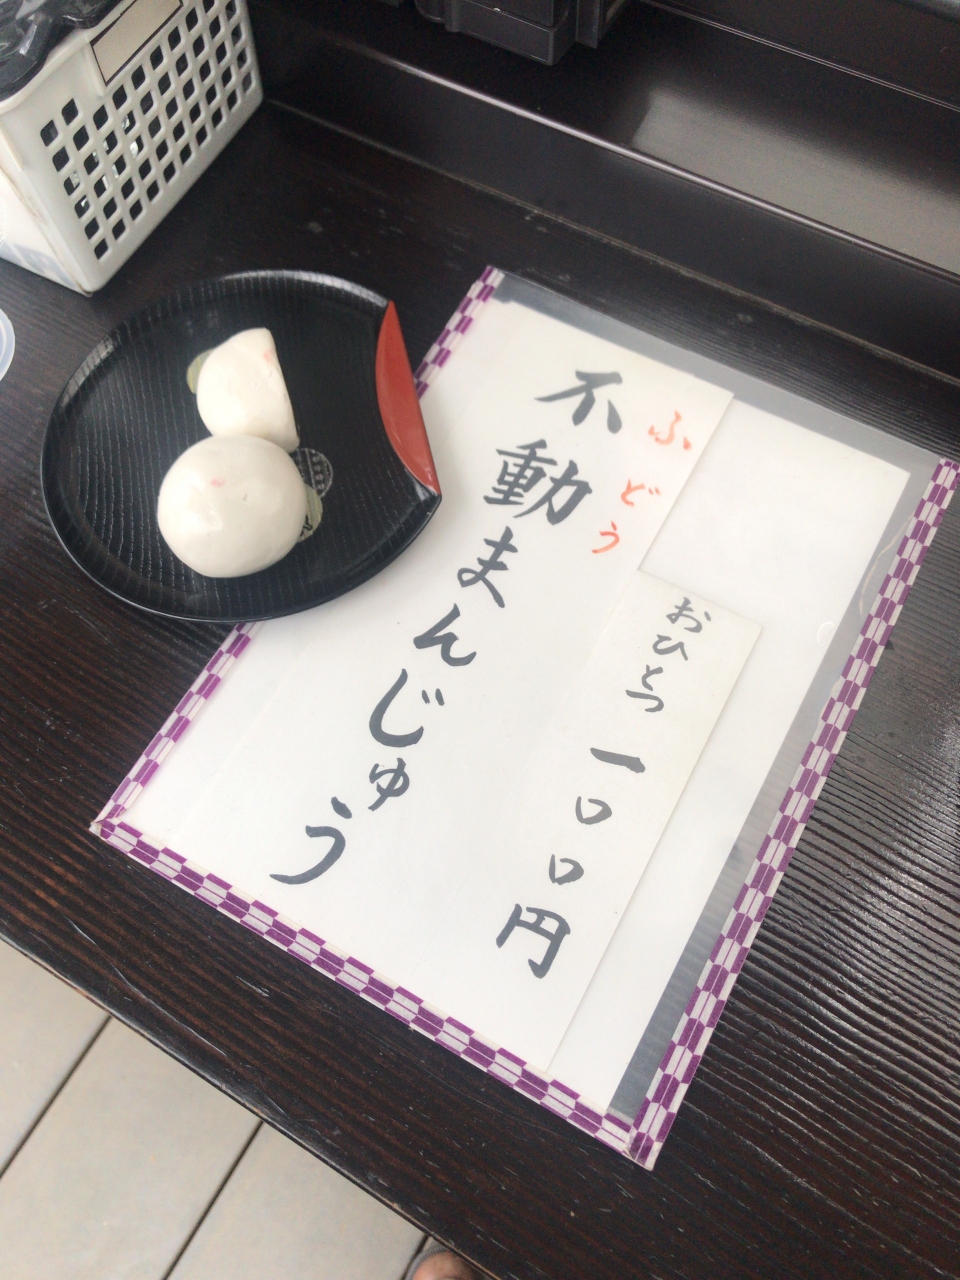 ふどう
不動まんじゅう
おひとつ
一〇〇円